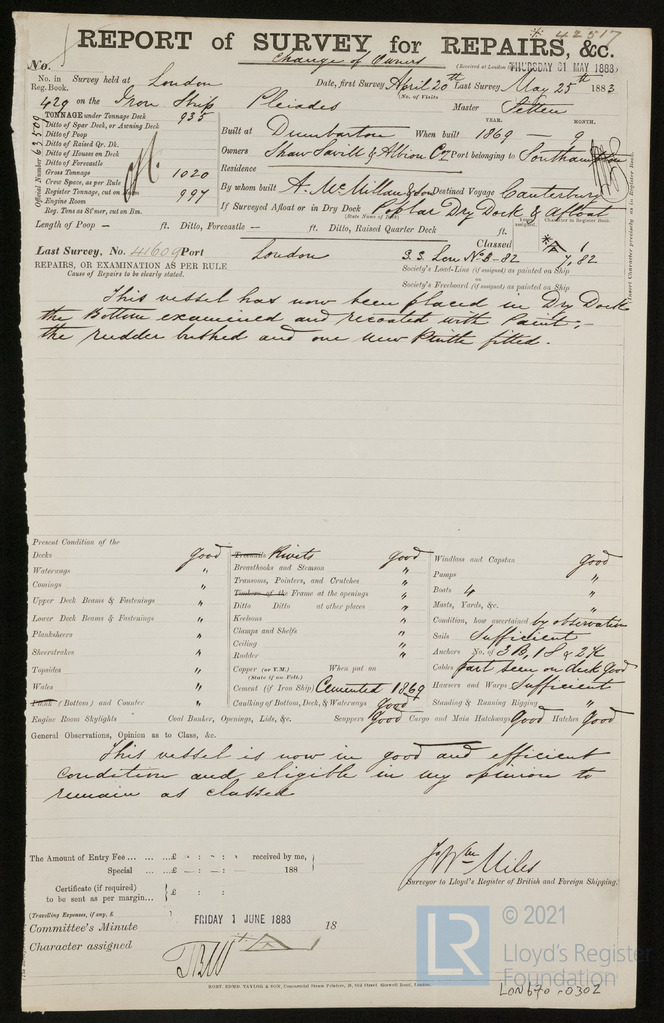 42517
REPORT of SURVEY for REPAIRS, &c.
Change of Owners
No. (Received at London THURSDAY 31 MAY 1883)
No. in Reg. Book. Survey held at London Date, first Survey April 20th Last Survey May 25th 1883
(No. of Visits)
429 on the Iron Ship Pleiades Master Setten
TONNAGE under Tonnage Deck 935
Ditto of Spar Deck, or Awning Deck
Ditto of Poop
Ditto of Raised Qr. Dk.
Ditto of Houses on Deck
Ditto of Forecastle
Gross Tonnage 1020
Crew Space, as per Rule
Register Tonnage, cut on Beam 997
Engine Room
Reg. Tons as St'mer, cut on Bm.
Official Number 63509
YEAR. MONTH.
Built at Dumbarton When built 1869 — 9
Owners Shaw Savill & Albion Coy Port belonging to Southampton
Residence
By whom built A. McMillan & Son Destined Voyage Canterbury
If Surveyed Afloat or in Dry Dock Poplar Dry Dock & Afloat
(State Name of Dock)
Length of Poop — ft. Ditto, Forecastle — ft. Ditto, Raised Quarter Deck ft.
Last Survey, No. 41609 Port London Classed
S.S. Lon No 2-82 7,82
REPAIRS, OR EXAMINATION AS PER RULE
Cause of Repairs to be clearly stated.
Society's Load-Line (if assigned) as painted on Ship
Society's Freeboard (if assigned) as painted on Ship
This vessel has now been placed in Dry Dock
the Bottom examined and recoated with Paint;-
the rudder bushed and one new Pintle fitted.
Present Condition of the
Decks good
Waterways "
Comings "
Upper Deck Beams & Fastenings "
Lower Deck Beams & Fastenings "
Planksheers "
Sheerstrakes "
Topsides "
Wales "
Plank (Bottom) and Counter "
Engine Room Skylights Coal Bunker, Openings, Lids, &c. Scuppers Good Cargo and Main Hatchways Good Hatches Good
Treenails Rivets good
Breasthooks and Stemson "
Transoms, Pointers, and Crutches "
Timbers of the Frame at the openings "
Ditto Ditto at other places "
Keelsons "
Clamps and Shelfs "
Ceiling "
Rudder "
Copper (or Y.M.) When put on
(State if on Felt.)
Cement (if Iron Ship) Cemented 1869
Caulking of Bottom, Deck, & Waterways Good
Windlass and Capstan good
Pumps "
Boats 4 "
Masts, Yards, &c. "
Condition, how ascertained by observation
Sails Sufficient
Anchors No. of 3 B, 1 S & 2 K
Cables part seen on deck Good
Hawsers and Warps Sufficient
Standing & Running Rigging "
General Observations, Opinion as to Class, &c.
This vessel is now in good and efficient
condition and eligible in my opinion to
remain as classed
The Amount of Entry Fee ... ... ...£ : : received by me,
Special ... ...£ : : 188
Certificate (if required)
to be sent as per margin... £ : :
(Travelling Expenses, if any, £
Miles
Surveyor to Lloyd's Register of British and Foreign Shipping.
Committee's Minute FRIDAY 1 JUNE 1883 18
Character assigned
ROBT. EDMD. TAYLOR & SON, Commercial Steam Printers, 19, Old Street, Goswell Road, London.
LR © 2021
Lloyd's Register
Foundation
LON670-0302